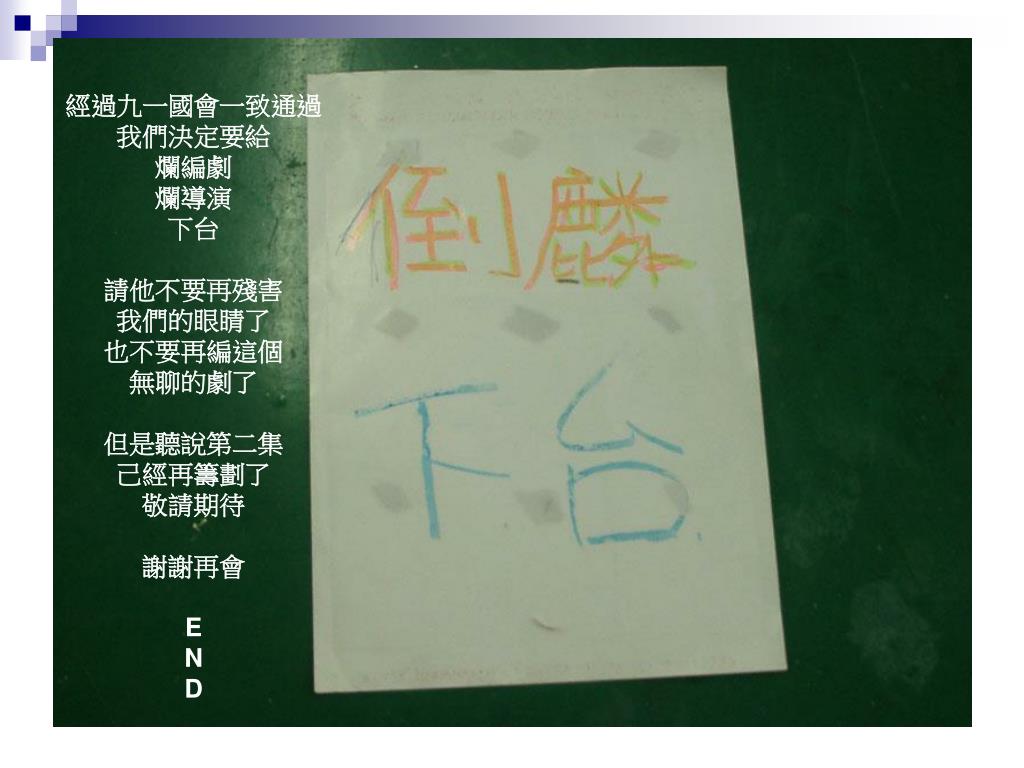 經過九一國會一致通過
我們決定要給
爛編劇
爛導演
下台
請他不要再殘害
我們的眼睛了
也不要再編這個
無聊的劇了
但是聽說第二集
己經再籌劃了
敬請期待
謝謝再會
E
N
D
倒麟
下台